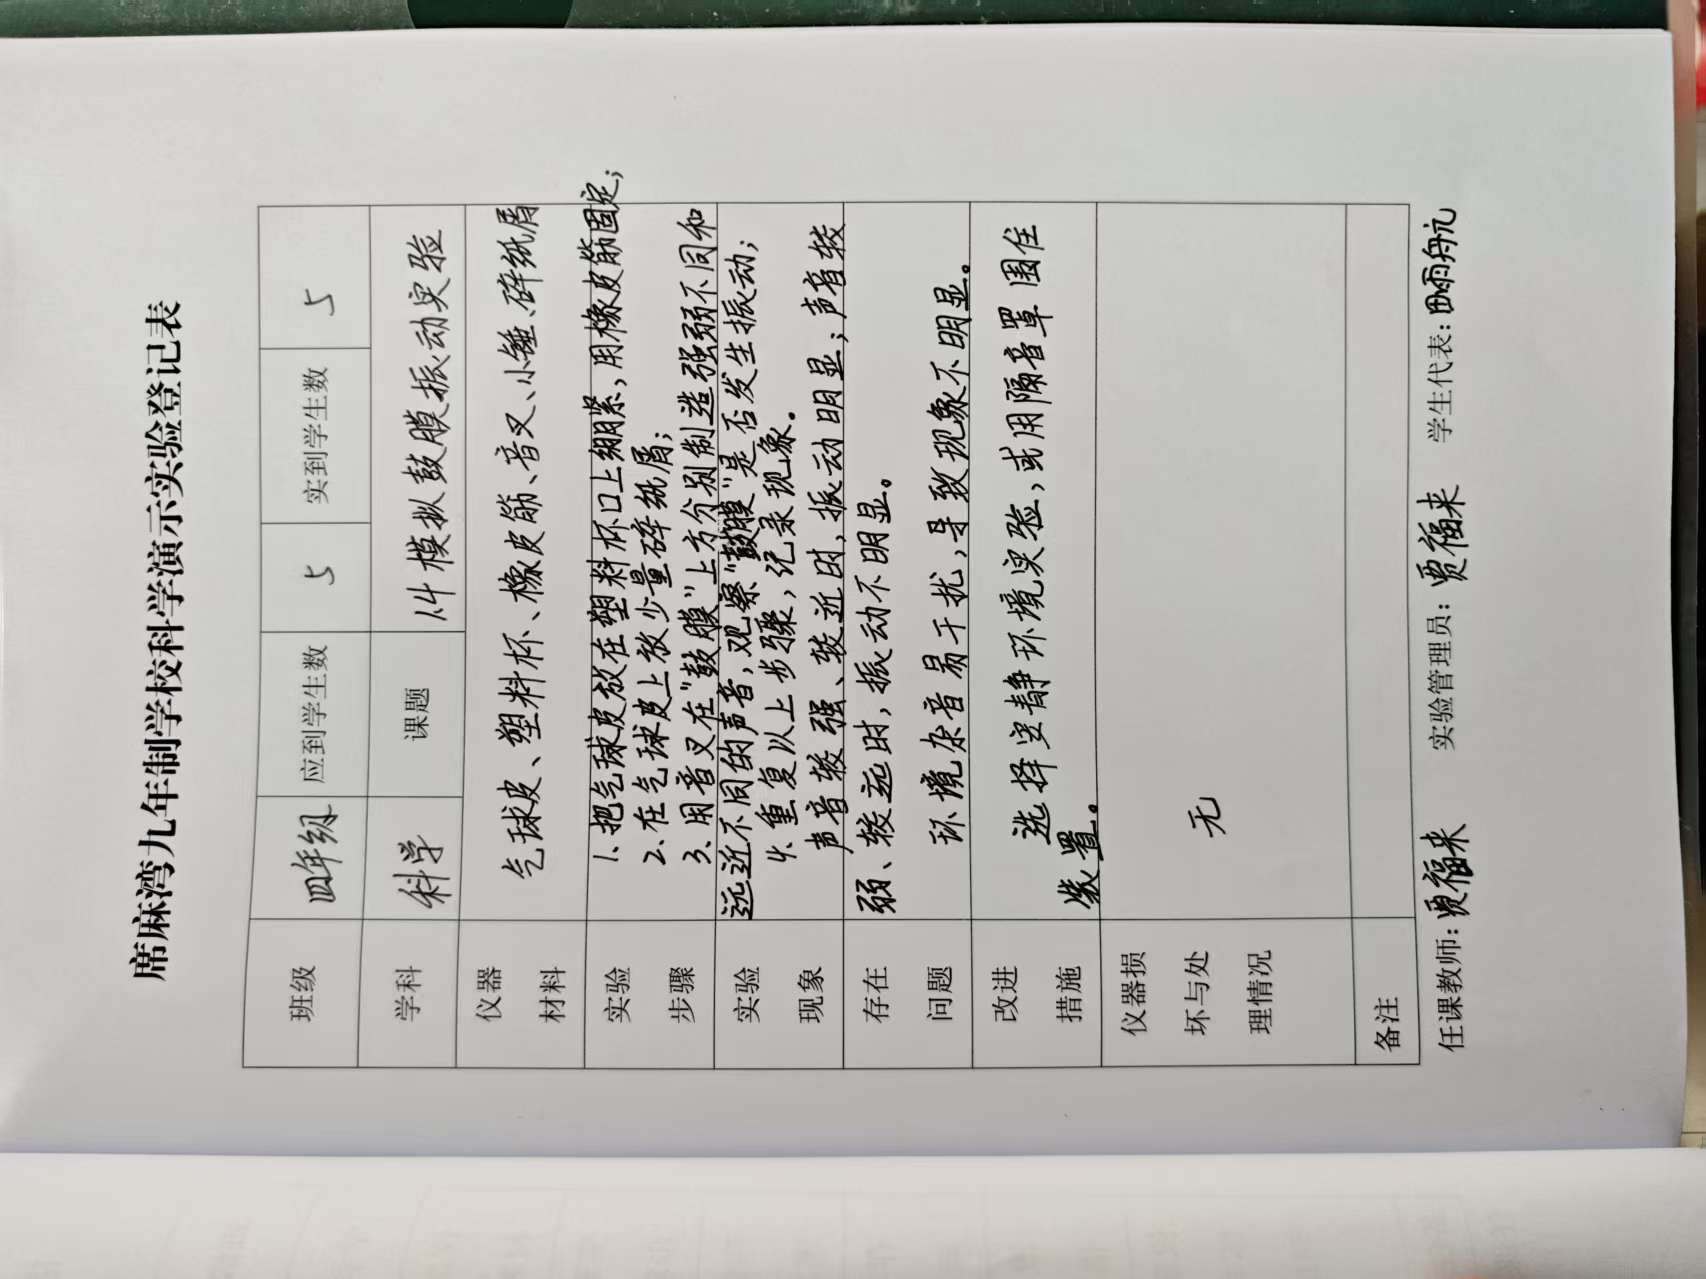 席麻湾九年制学校科学演示实验登记表
班级 四年级 应到学生数 5 实到学生数 5
学科 科学 课题 1.4模拟鼓膜振动实验
仪器材料 气球皮、塑料杯、橡皮筋、音叉、小锤、碎纸屑
实验步骤 1、把气球皮放在塑料杯口上绷紧,用橡皮筋固定;
2、在气球皮上放少量碎纸屑;
3、用音叉在"鼓膜"上方分别制造强弱不同和
远近不同的声音,观察"鼓膜"是否发生振动;
4、重复以上步骤,记录现象。
实验现象 声音较强、较近时,振动明显;声音较
弱、较远时,振动不明显。
存在问题 环境杂音易干扰,导致现象不明显。
改进措施 选择安静环境实验,或用隔音罩围住
装置。
仪器损坏与处理情况 无
备注
任课教师:贾福来 实验管理员:贾福来 学生代表:雨航